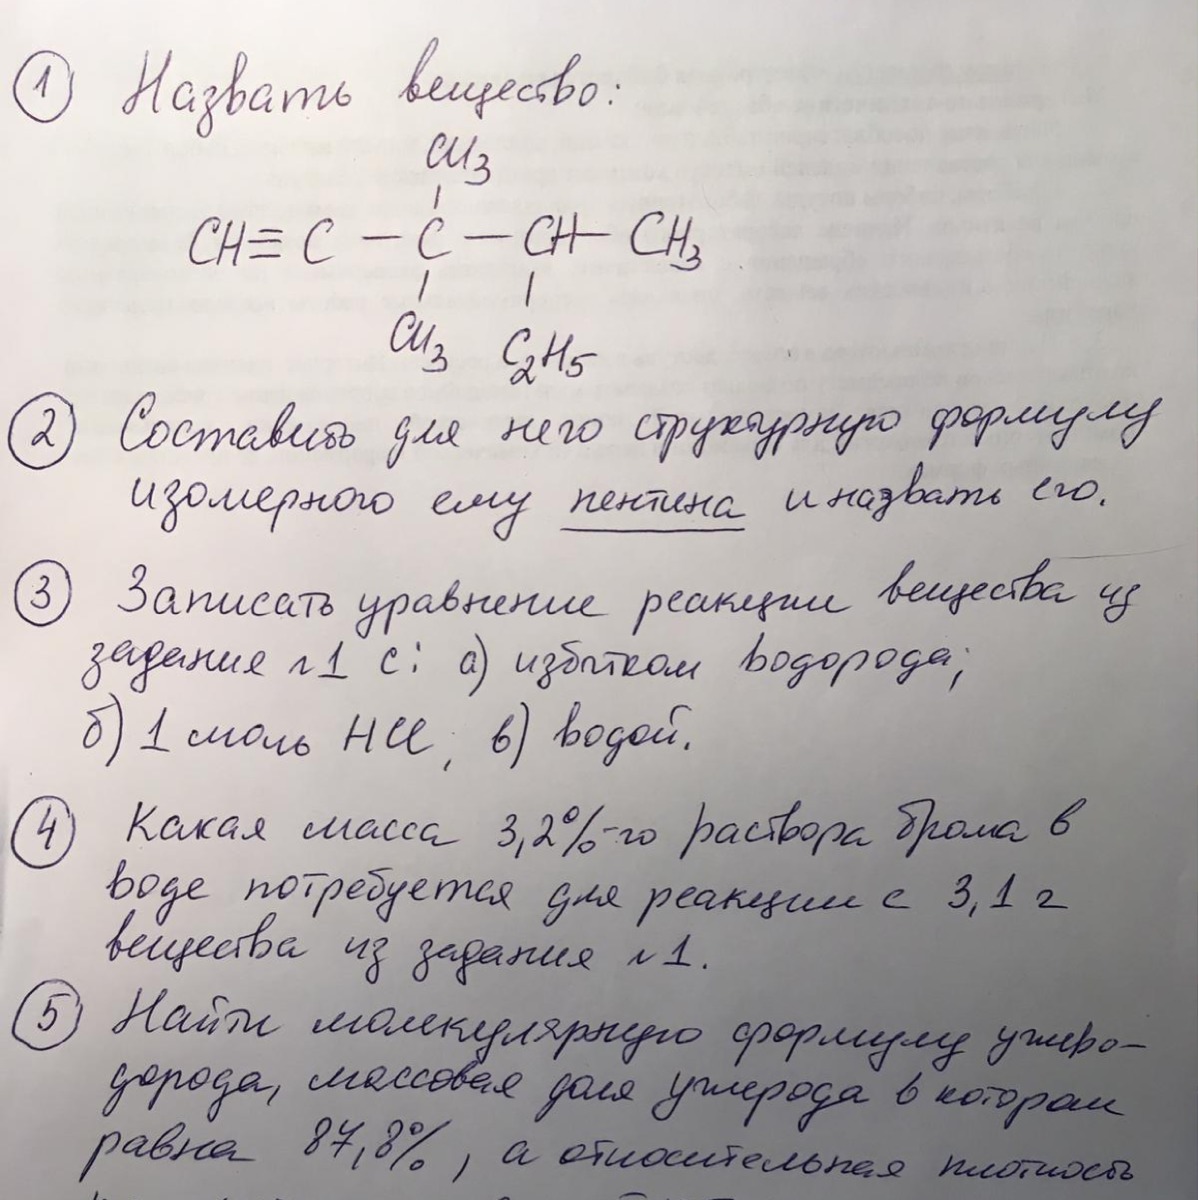 ① Назвать вещество:
CH3
CH≡C — C — CH — CH3
CH3 C2H5
② Составить для него структурную формулу
изомерного ему пентина и назвать его.
③ Записать уравнение реакции вещества из
задания №1 с: а) избытком водорода;
б) 1 моль HCl; в) водой.
④ Какая масса 3,2%-го раствора брома в
воде потребуется для реакции с 3,1 г
вещества из задания №1.
⑤ Найти молекулярную формулу углево-
дорода, массовая доля углерода в котором
равна 87,8%, а относительная плотность